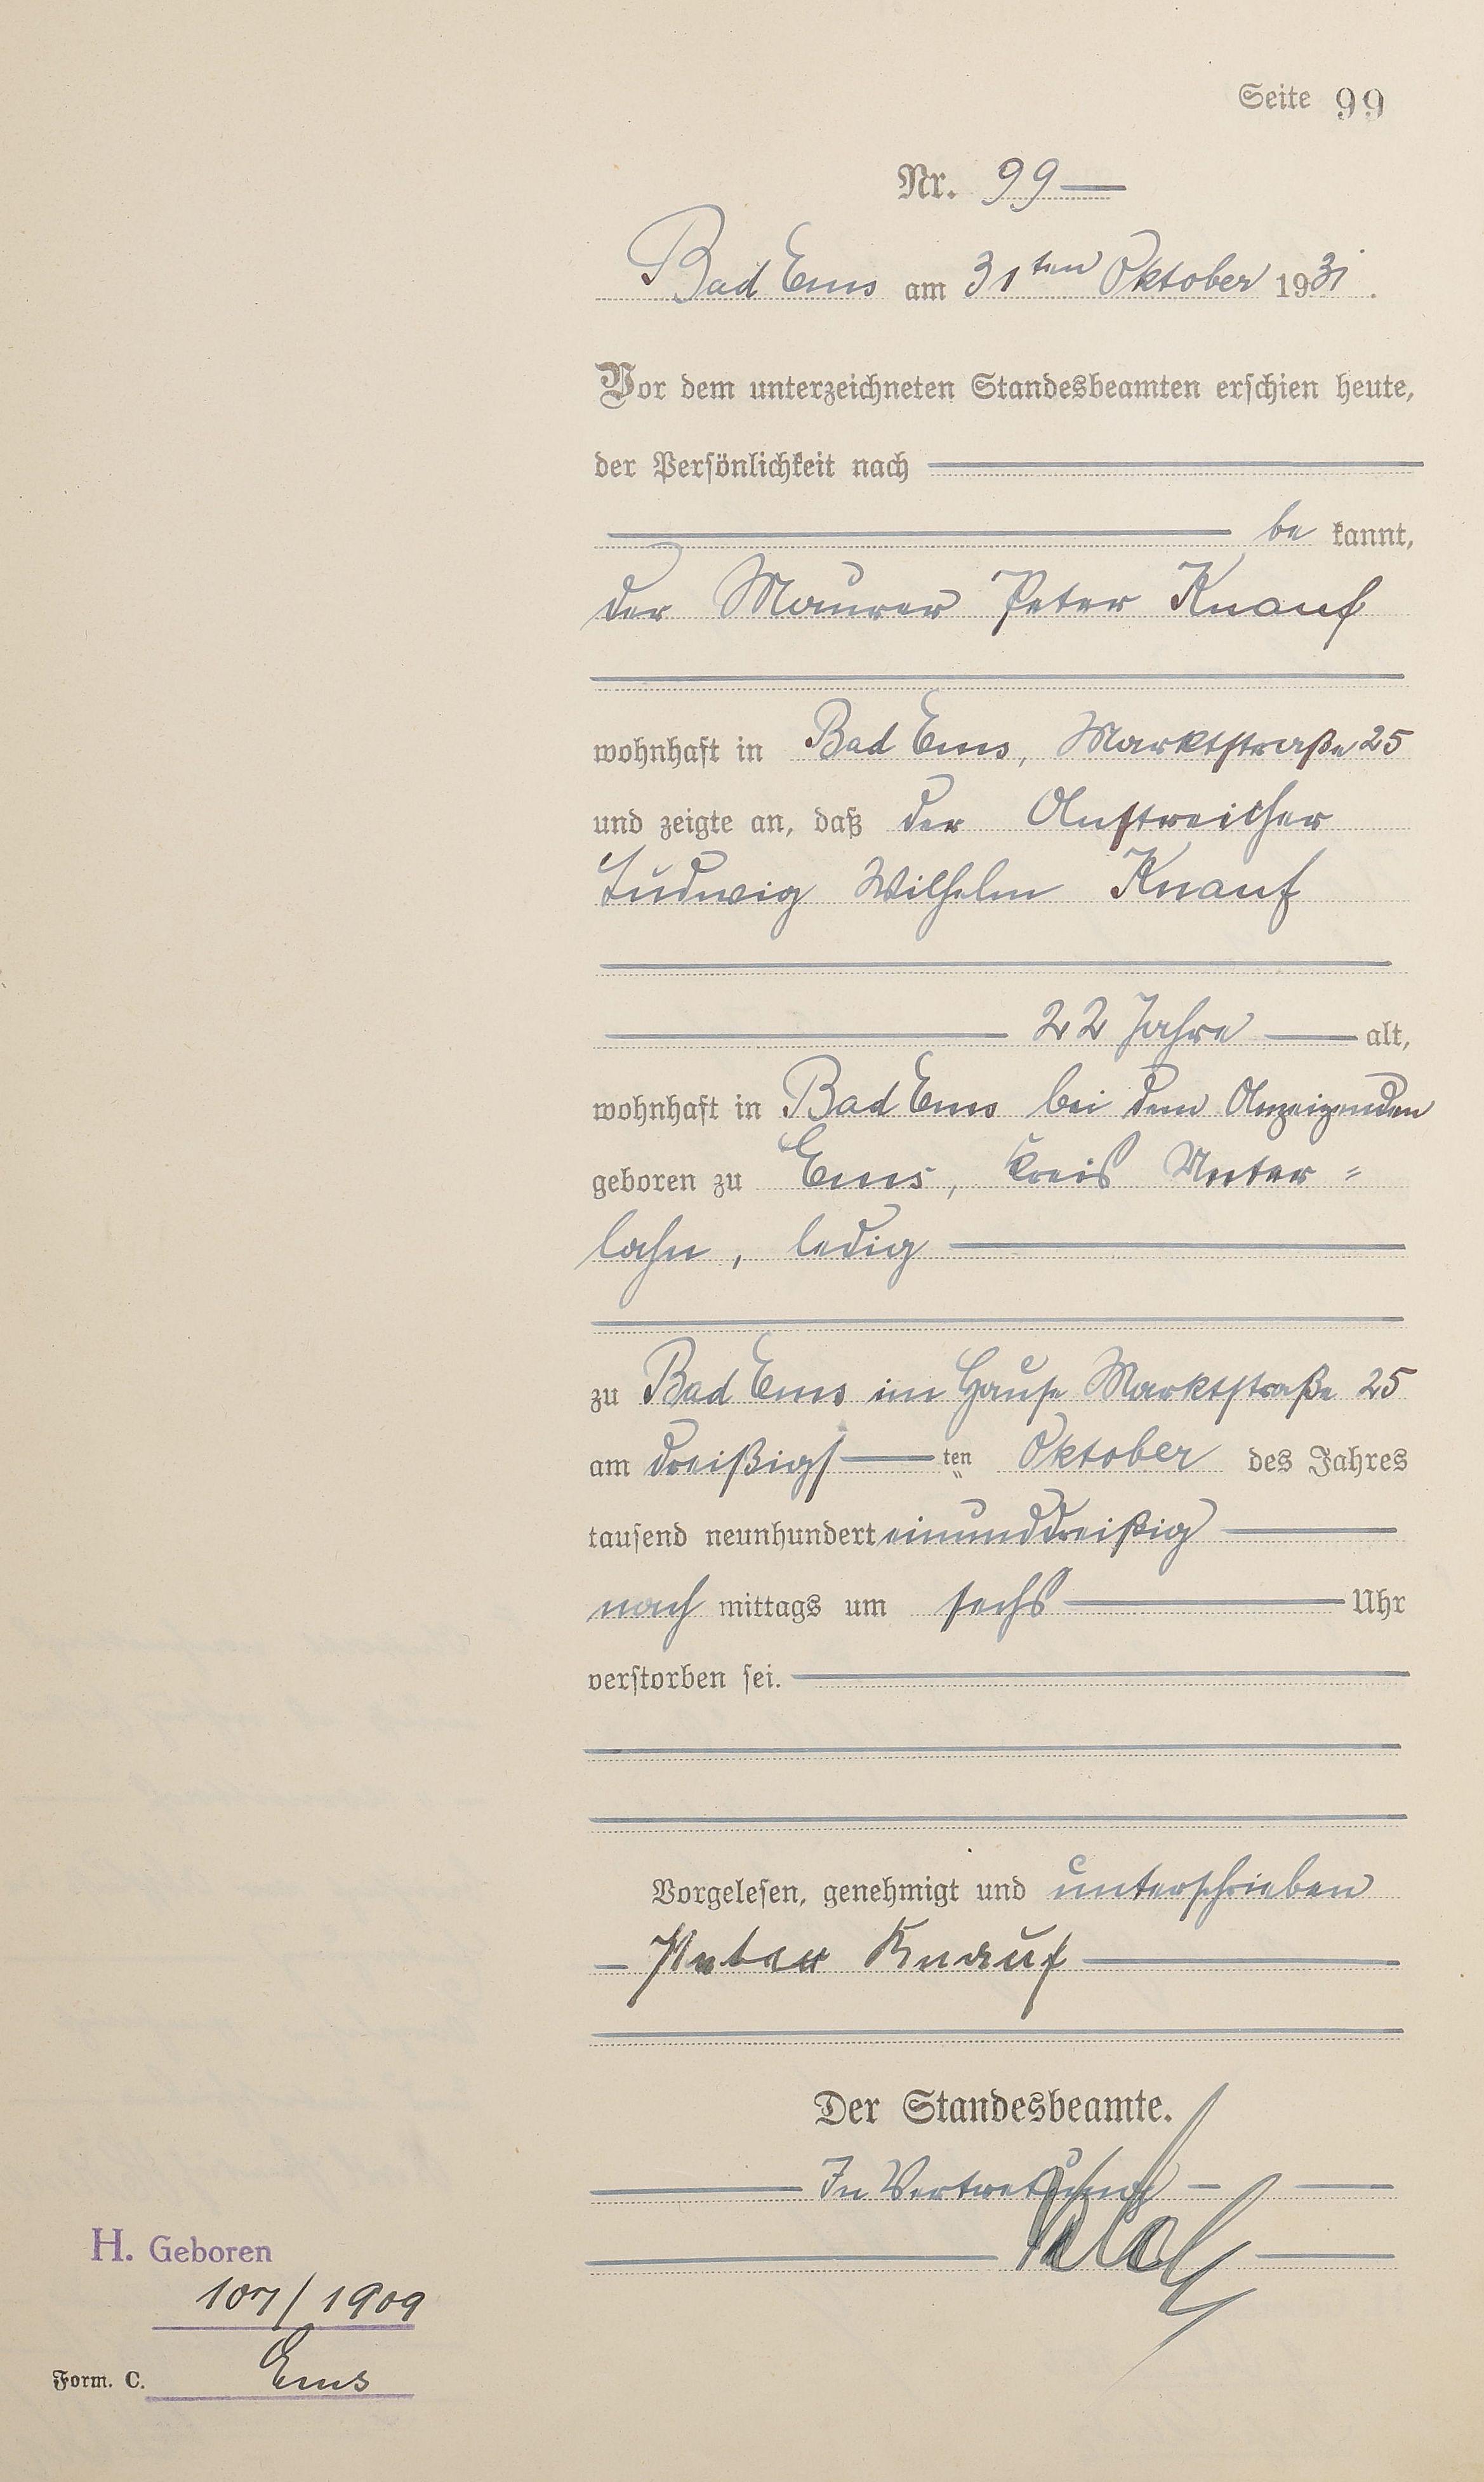 Seite 99
Nr. 99
Bad Ems am 31ten Oktober 1931.
Vor dem unterzeichneten Standesbeamten erschien heute,
der Persönlichkeit nach
be kannt,
der Maurer Peter Knauf
wohnhaft in Bad Ems, Marktstraße 25
und zeigte an, daß der Anstreicher
Ludwig Wilhelm Knauf
22 Jahre alt,
wohnhaft in Bad Ems bei dem Anzeigenden
geboren zu Ems, Kreis Unter=
lahn, ledig
zu Bad Ems im Hause Marktstraße 25
am dreißigs ten Oktober des Jahres
tausend neunhundert einunddreißig
nach mittags um sechs Uhr
verstorben sei.
Vorgelesen, genehmigt und unterschrieben
Peter Knauf
Der Standesbeamte.
In Vertretung
H. Geboren
107/1909
Form. C. Ems